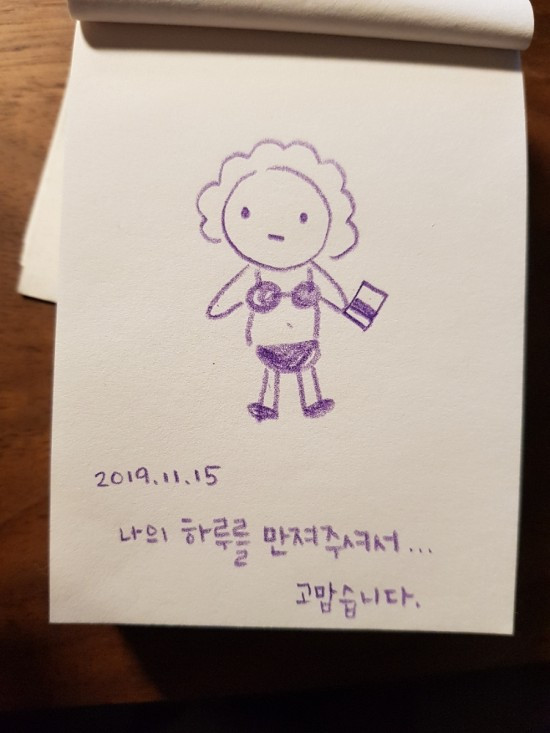 2019.11.15
나의 하루를 만져주셔서...
고맙습니다.